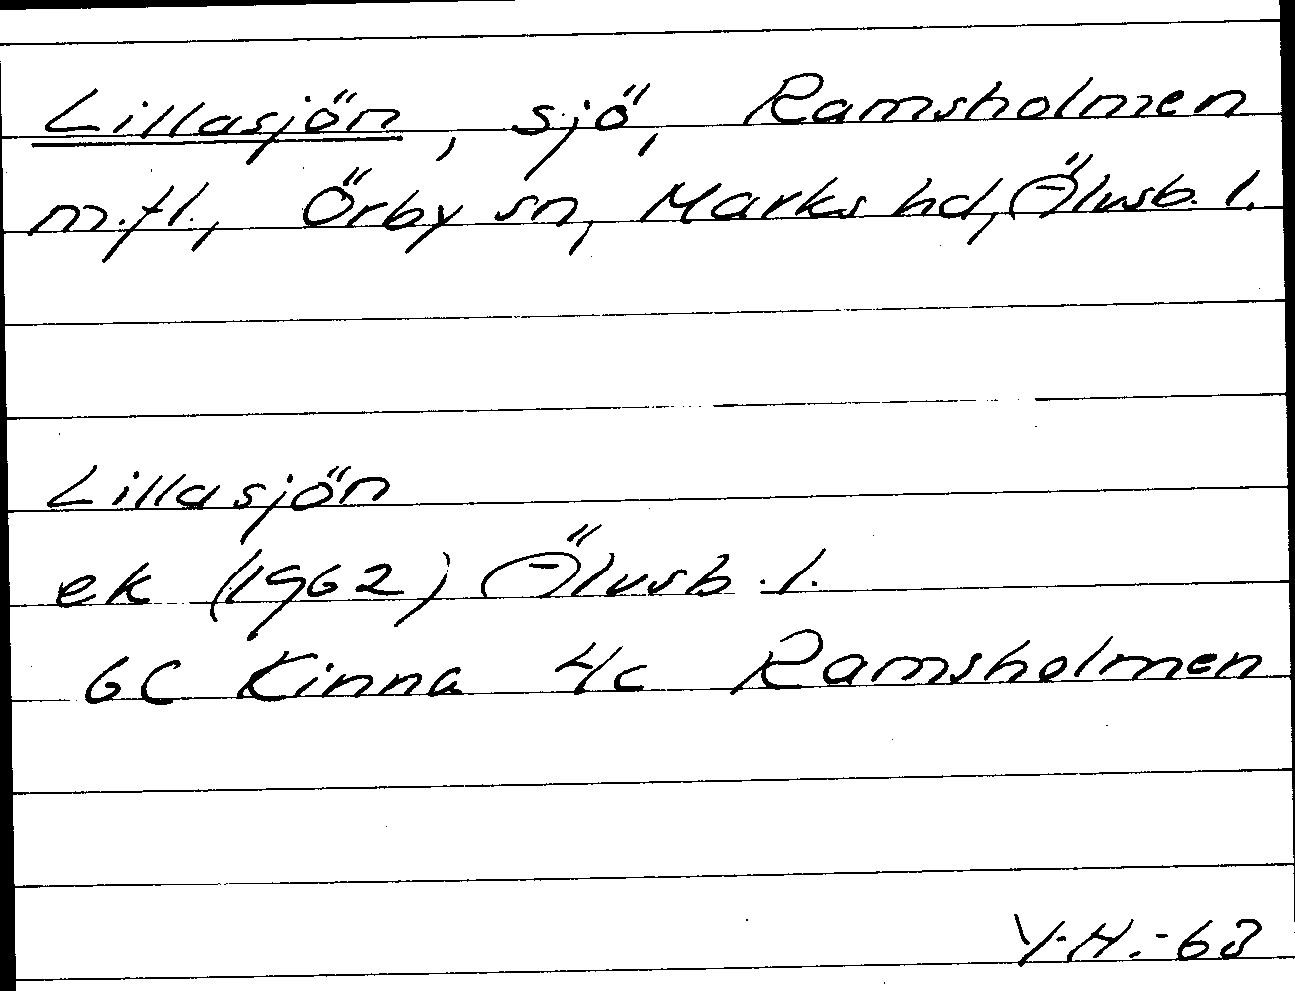 Lillasjön, sjö, Ramsholmen
m.fl., Örby sn, Marks hd, Älvsb. l.
Lillasjön
ek (1962) Älvsb. l.
6C Kinna 4c Ramsholmen
Y.H.-63